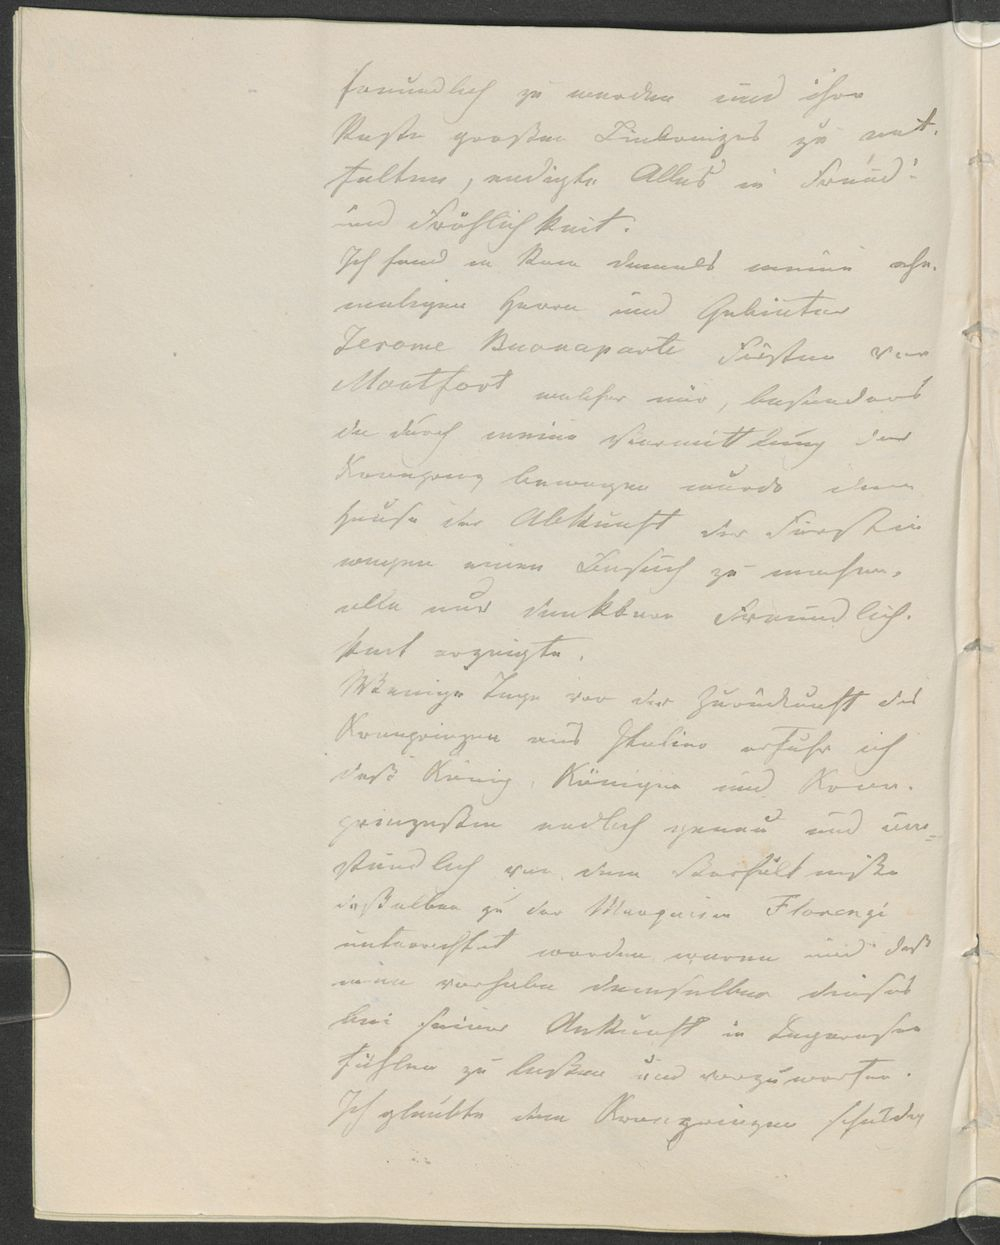 freundlich zu werden und ihre
Reste großen Liebreizes zu ent-
falten, endigte Alles in Freud-
und Fröhlichkeit.
Ich fand in Rom damals meinen ehe-
maligen Herrn und Gebieter
Jerome Buonaparte Fürsten von
Montfort welcher mir, besonders
da durch meine Vermittlung der
Kronprinz bewogen wurde dem
Hause der Abkunft der Fürstin
wegen einen Besuch zu machen,
alle nur denkbare Freundlich-
keit erzeigte.
Wenige Tage vor der Zurückunft des
Kronprinzen aus Italien erfuhr ich
daß König, Königin und Kron-
prinzessin endlich genau und um-
ständlich von dem Verhältnisse
desselben zu der Marquisin Florenzi
unterrichtet worden waren und daß
man vorhabe demselben dieses
bei seiner Ankunft in Tegernsee
fühlen zu lassen und vorzuwerfen.
Ich glaubte dem Kronprinzen schuldig